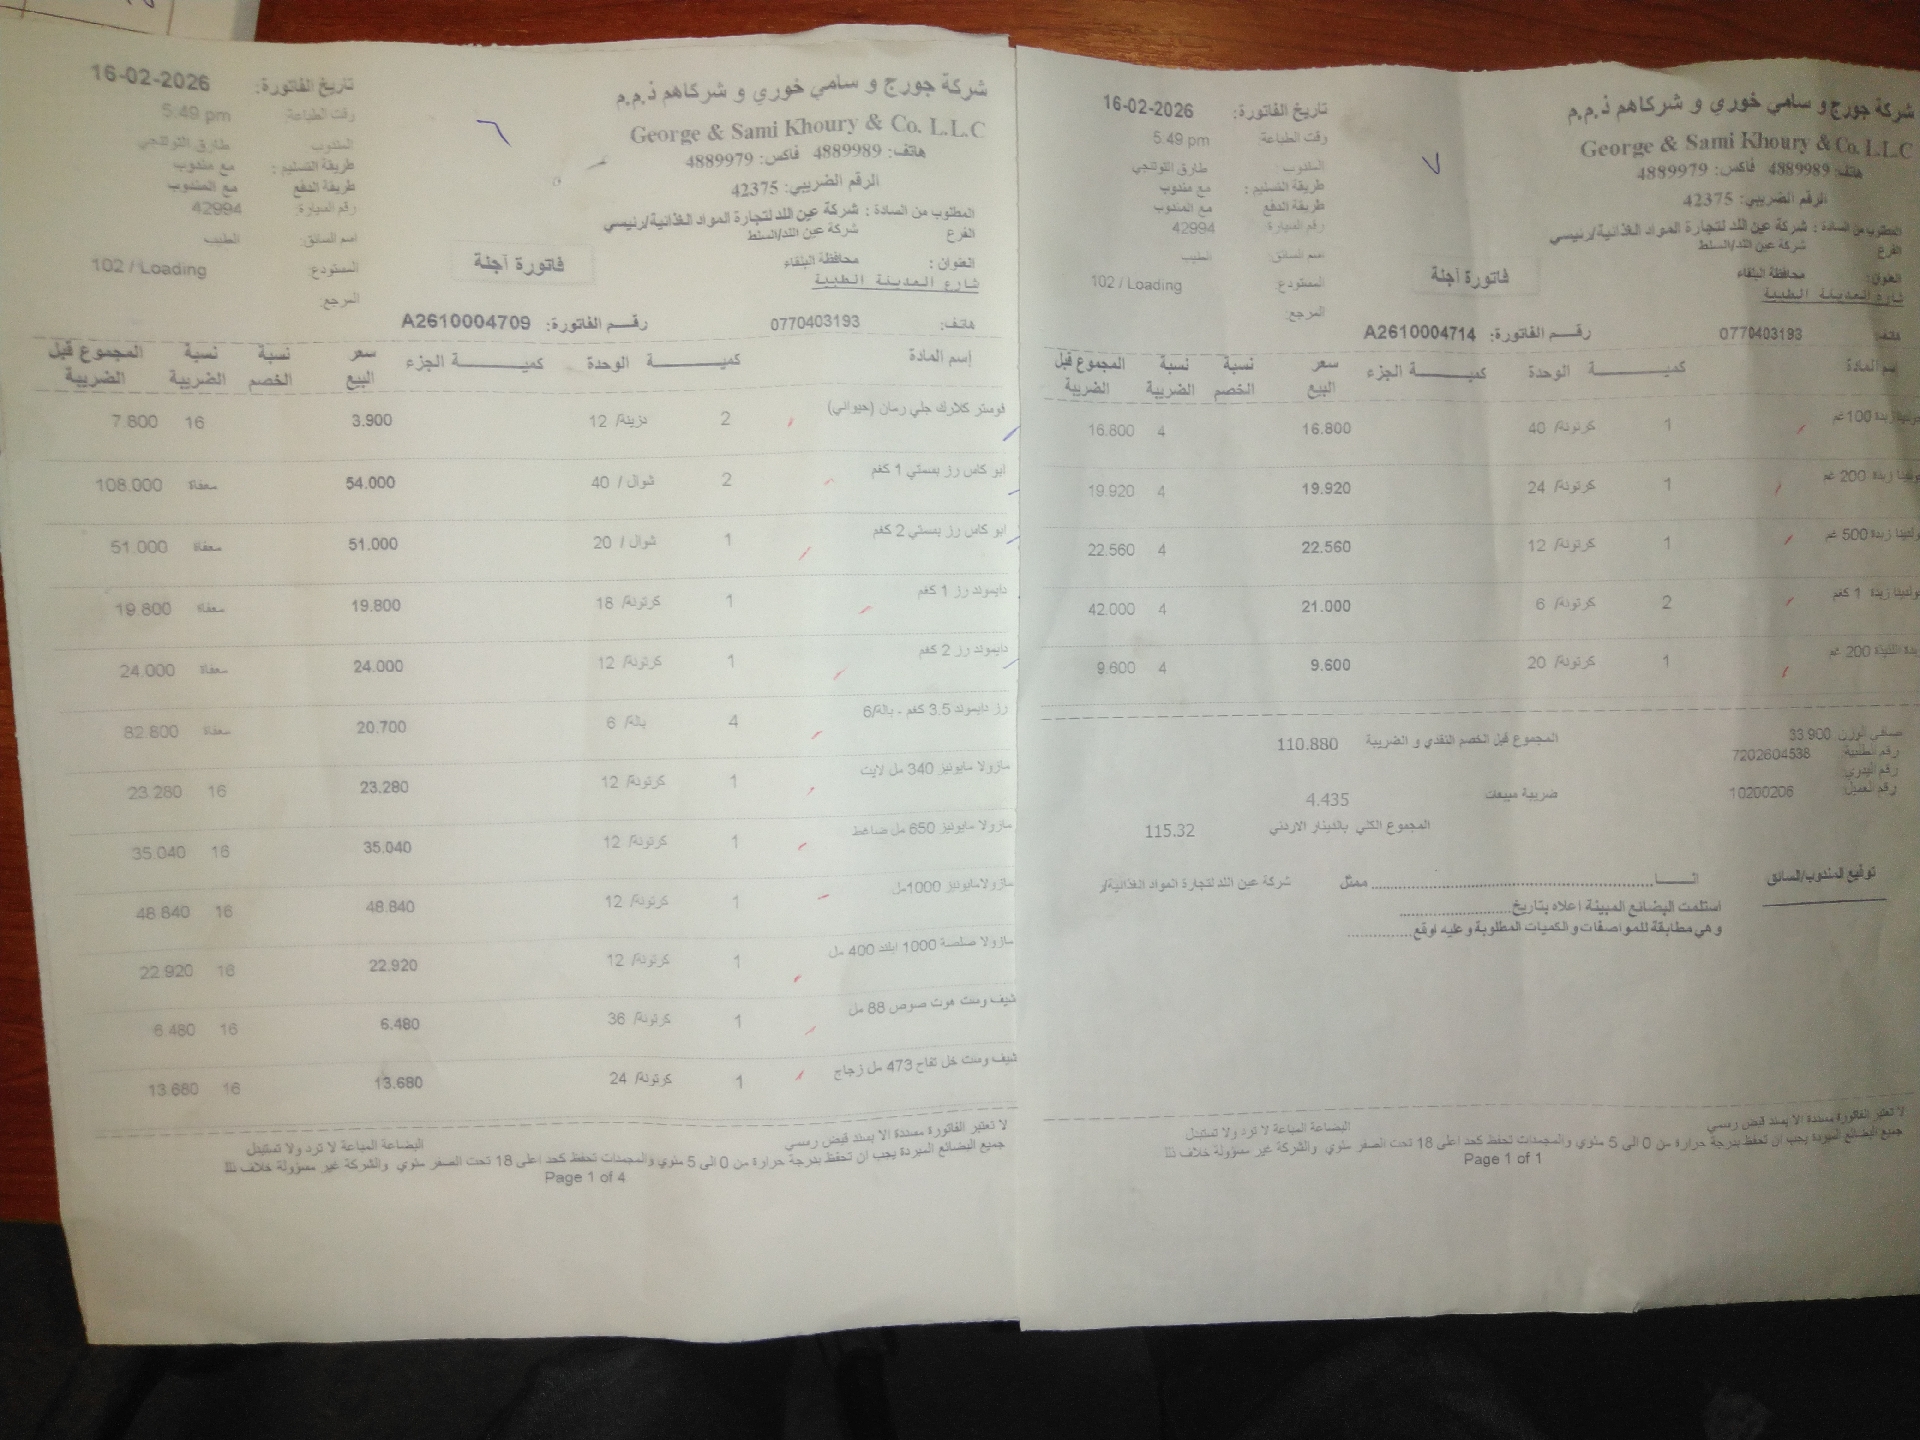 شركة جورج و سامي خوري و شركاهم ذ.م.م
George & Sami Khoury & Co. L.L.C
هاتف: 4889989 فاكس: 4889979
الرقم الضريبي: 42375
المطلوب من السادة : شركة عين اللد لتجارة المواد الغذائية/رئيسي
الفرع شركة عين اللد/السلط
العنوان : محافظة البلقاء
شارع المدينة الطبية
هاتف: 0770403193
تاريخ الفاتورة: 16-02-2026
وقت الطباعة: 5:49 pm
المندوب طارق اللوتنجي
طريقة التسليم : مع مندوب
طريقة الدفع مع المندوب
رقم السيارة: 42994
اسم السائق: الطيب
المستودع: 102 / Loading
المرجع:
فاتورة آجلة
رقم الفاتورة: A2610004714
إسم المادة كمية الوحدة كمية الجزء سعر البيع نسبة الخصم نسبة الضريبة المجموع قبل الضريبة
زبدة 100 غم 1 كرتونة/ 40 16.800 4 16.800
زبدة 200 غم 1 كرتونة/ 24 19.920 4 19.920
زبدة 500 غم 1 كرتونة/ 12 22.560 4 22.560
زبدة 1 كغم 2 كرتونة/ 6 21.000 4 42.000
200 غم 1 كرتونة/ 20 9.600 4 9.600
صافي الوزن 33.900
رقم الطلبية 7202604538
رقم اليدوي
رقم العميل: 10200206
المجموع قبل الخصم النقدي و الضريبة 110.880
ضريبة مبيعات 4.435
المجموع الكلي بالدينار الاردني 115.32
توقيع المندوب/السائق
انــا ........ ممثل شركة عين اللد لتجارة المواد الغذائية/ر
استلمت البضائع المبينة اعلاه بتاريخ........
وهي مطابقة للمواصفات و الكميات المطلوبة وعليه اوقع........
لا تعتبر الفاتورة مسددة الا بسند قبض رسمي البضاعة المباعة لا ترد ولا تستبدل
جميع البضائع المبردة يجب ان تحفظ بدرجة حرارة من 0 الى 5 مئوي والمجمدات تحفظ كحد اعلى 18 تحت الصفر مئوي والشركة غير مسؤولة خلاف ذلك
Page 1 of 1
شركة جورج و سامي خوري و شركاهم ذ.م.م
George & Sami Khoury & Co. L.L.C
هاتف: 4889989 فاكس: 4889979
الرقم الضريبي: 42375
المطلوب من السادة : شركة عين اللد لتجارة المواد الغذائية/رئيسي
الفرع شركة عين اللد/السلط
العنوان : محافظة البلقاء
شارع المدينة الطبية
هاتف: 0770403193
تاريخ الفاتورة: 16-02-2026
وقت الطباعة: 5:49 pm
المندوب طارق اللوتنجي
طريقة التسليم : مع مندوب
طريقة الدفع مع المندوب
رقم السيارة: 42994
اسم السائق: الطيب
المستودع: 102 / Loading
المرجع:
فاتورة آجلة
رقم الفاتورة: A2610004709
إسم المادة كمية الوحدة كمية الجزء سعر البيع نسبة الخصم نسبة الضريبة المجموع قبل الضريبة
فوستر كلارك جلي رمان (حيواني) 2 دزينة/ 12 3.900 16 7.800
ابو كاس رز بسمتي 1 كغم 2 شوال / 40 54.000 معفاة 108.000
ابو كاس رز بسمتي 2 كغم 1 شوال / 20 51.000 معفاة 51.000
دايموند رز 1 كغم 1 كرتونة/ 18 19.800 معفاة 19.800
دايموند رز 2 كغم 1 كرتونة/ 12 24.000 معفاة 24.000
رز دايموند 3.5 كغم - بالة/6 4 بالة/ 6 20.700 معفاة 82.800
مازولا مايونيز 340 مل لايت 1 كرتونة/ 12 23.280 16 23.280
مازولا مايونيز 650 مل ضاغط 1 كرتونة/ 12 35.040 16 35.040
مازولا مايونيز 1000مل 1 كرتونة/ 12 48.840 16 48.840
مازولا صلصة 1000 ايلند 400 مل 1 كرتونة/ 12 22.920 16 22.920
شيف وست هوت صوص 88 مل 1 كرتونة/ 36 6.480 16 6.480
شيف وست خل تفاح 473 مل زجاج 1 كرتونة/ 24 13.680 16 13.680
لا تعتبر الفاتورة مسددة الا بسند قبض رسمي البضاعة المباعة لا ترد ولا تستبدل
جميع البضائع المبردة يجب ان تحفظ بدرجة حرارة من 0 الى 5 مئوي والمجمدات تحفظ كحد اعلى 18 تحت الصفر مئوي والشركة غير مسؤولة خلاف ذلك
Page 1 of 4